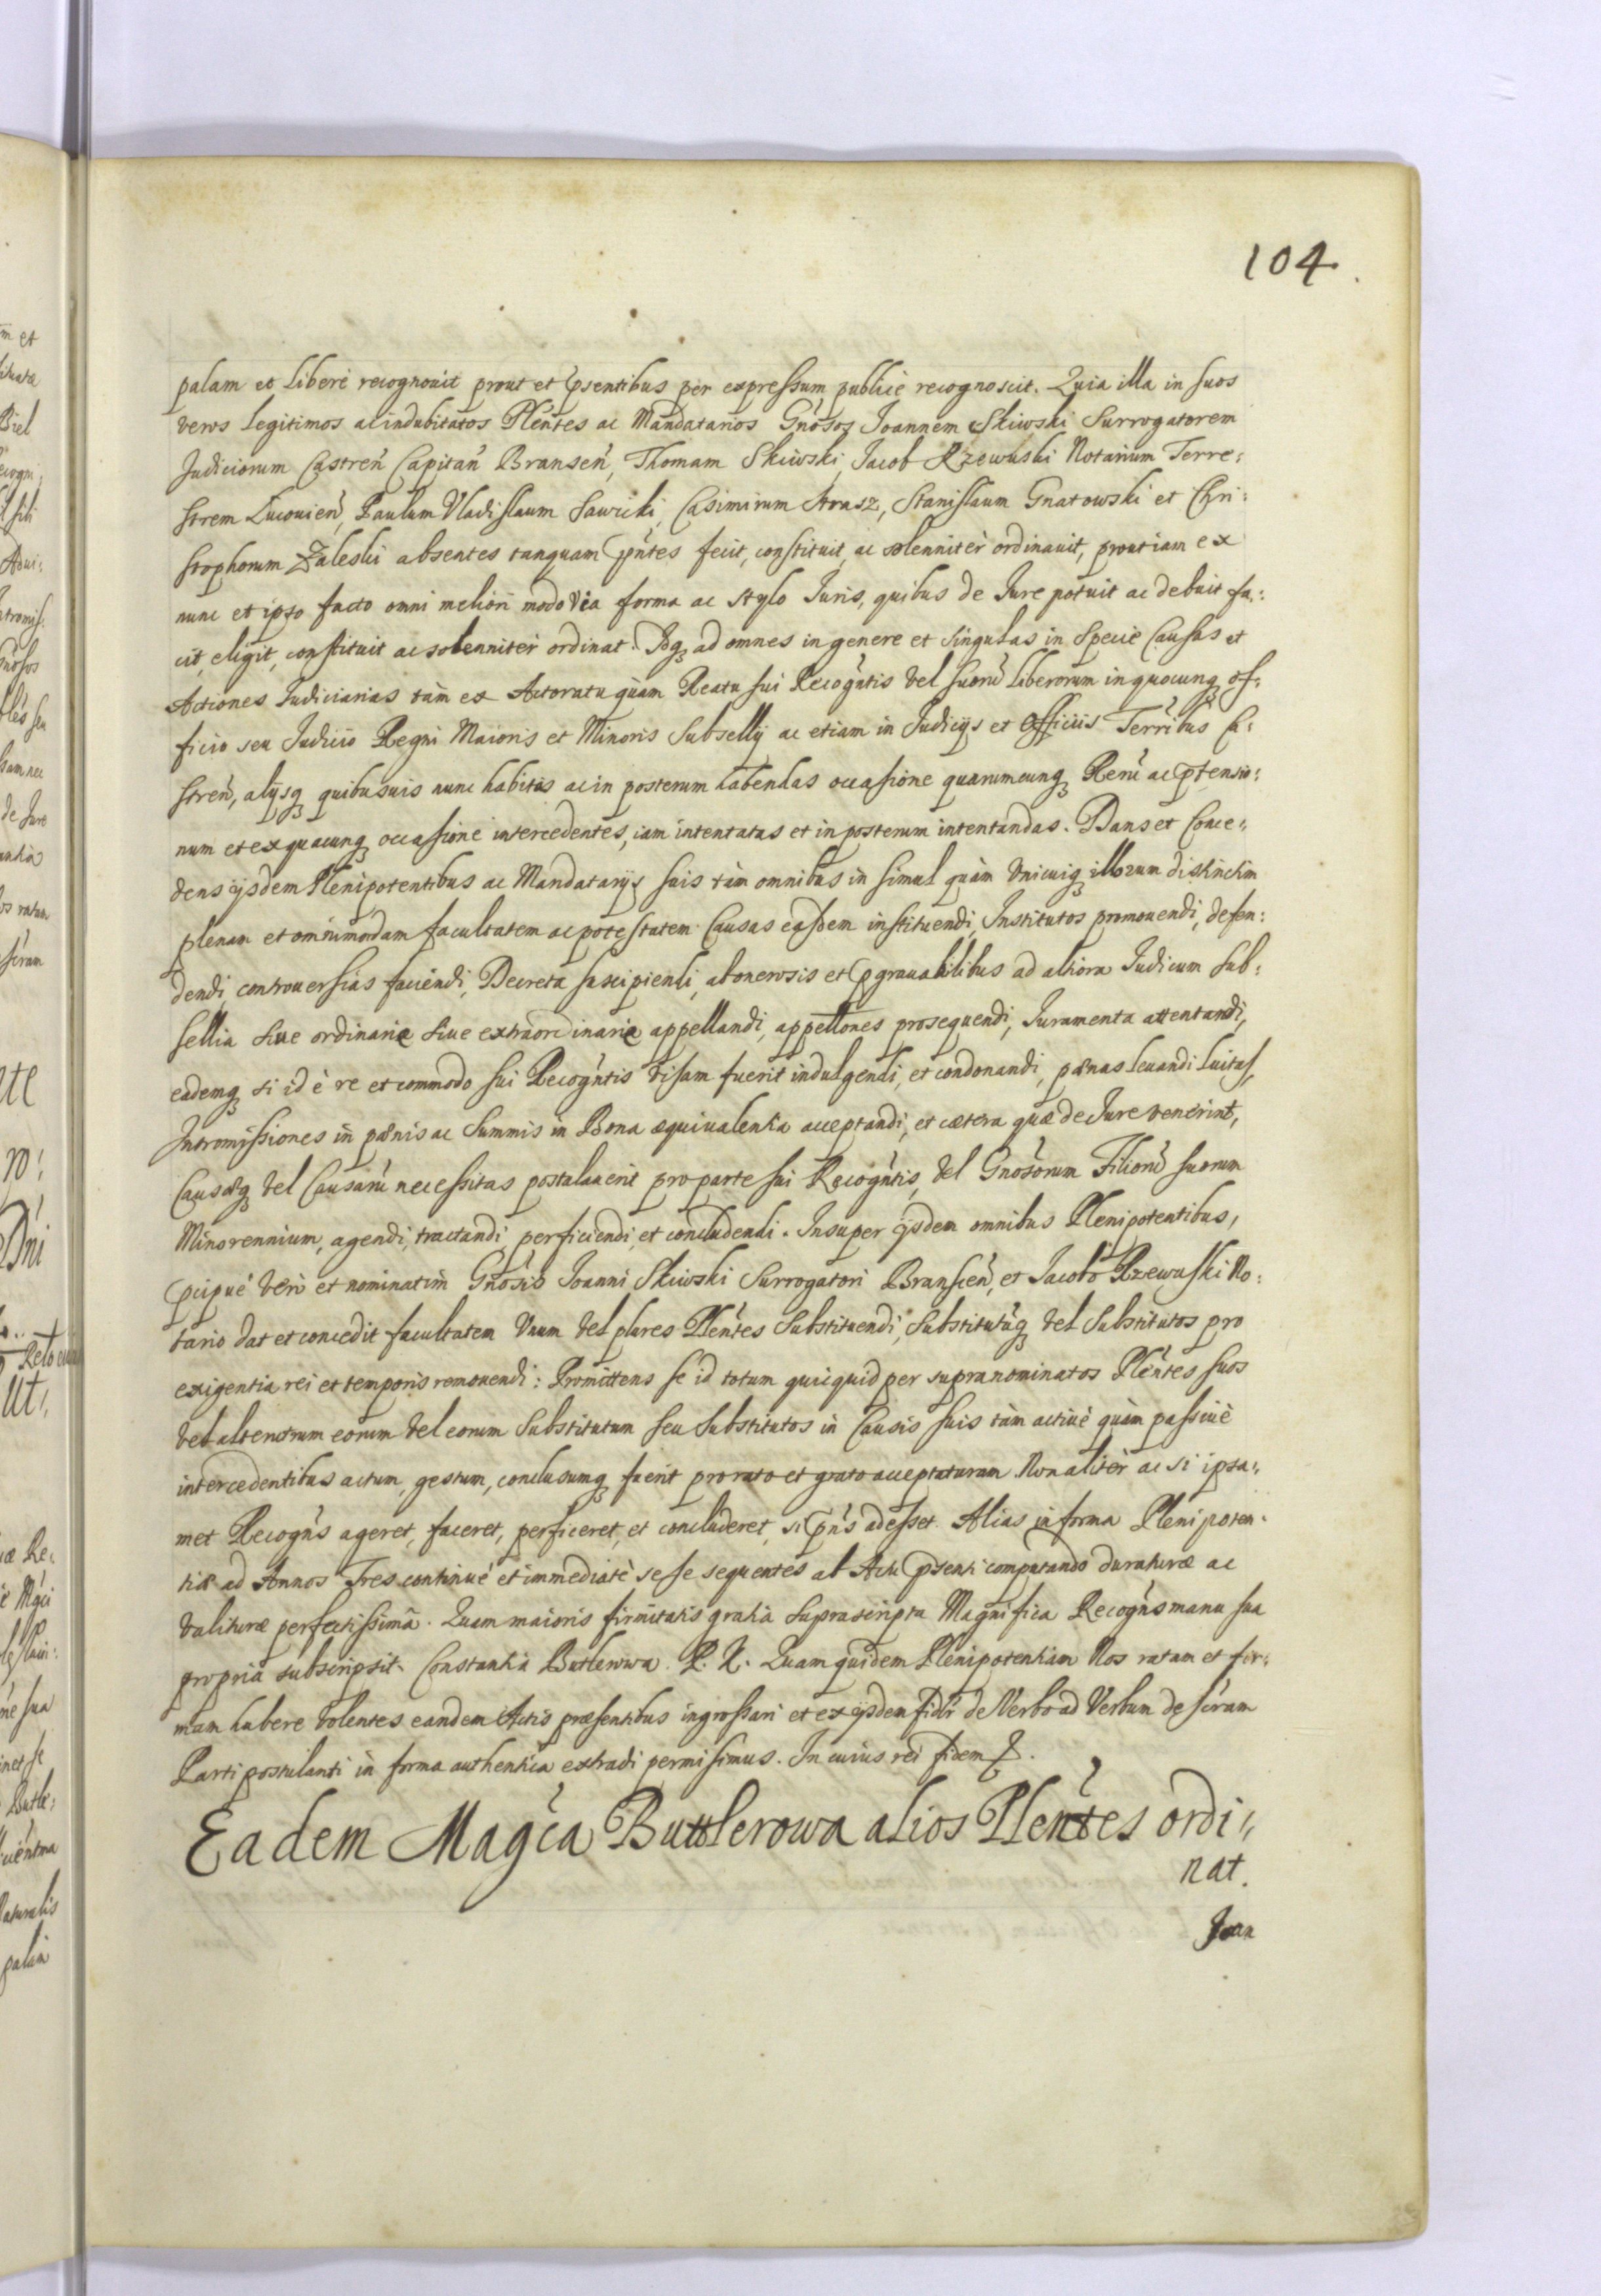 104
palam et libere recognovit prout et psentibus per expressum publice recognoscit. Quia illa in suos
veros legitimos ac indubitatos Plentes ac Mandatarios Gnosos Joannem Skiwski Surrogatorem
Judiciorum Castren Capitan Bransen, Thomam Skiwski, Jacob Rzewuski Notarium Terre:
strem Lucovien, Paulum Vladislaum Sawicki, Casimirum Strasz, Stanislaum Gnatowski et Chri:
stophorum Zaleski absentes tanquam pntes fecit, constituit, ac solenniter ordinavit, prout iam ex
nunc et ipso facto omni meliori modo via forma ac stylo Juris, quibus de Jure potuit ac debuit fa:
cit, eligit, constituit ac solenniter ordinat. Idq ad omnes in genere et singulas in specie Causas et
Actiones Judiciarias tam ex Actoratu quam Reatu sui Recogntis vel suoru Liberorum in quocunq of:
ficio seu Judicio Regni Maioris et Minoris Subsellij ac etiam in Judicijs et Officiis Terribus Ca:
stren, alijsq quibusuis nunc habitis ac in posterum habendas occasione quarumcunq Reru ac ptensio:
num et ex quacunq occasione intercedentes, iam intentatas et in posterum intentandas. Dans et Conce:
dens ijsdem Plenipotentibus ac Mandatarijs suis tam omnibus in simul quam vnicuiq illorum distinctim
plenam et omnimodam facultatem ac potestatem Causas easdem instituendi, Institutos promouendi, defen:
dendi, controuersias faciendi, Decreta suscipiendi, ab onerosis et pgrauabilibus ad altiora Judicum sub:
sellia siue ordinarie siue extraordinarie appellandi, appellones prosequendi, Juramenta attentandi,
eademq si id e re et commodo sui Recogntis visum fuerit indulgendi, et condonandi, pænas leuandi luitas,
Intromissiones in pænis ac summis in Bona æquiualentia acceptandi, et cætera quæ de Jure venerint,
Causæq vel Causaru necessitas postulauerit pro parte sui Recogntis, vel Gnosorum Filioru suorum
Minorennium, agendi, tractandi, perficiendi, et concludendi. Insuper ijsdem omnibus Plenipotentibus,
pcipue vero et nominatim Gnosis Joanni Skiwski Surrogatori Bransien, et Jacobo Rzewuski No:
tario dat et concedit facultatem vnum vel plures Plentes Substituendi, Substitutuq vel Substitutos pro
exigentia rei et temporis remouendi: Promittens se id totum quicquid per supranominatos Plentes suos
vel alterutrum eorum vel eorum Substitutum seu Substitutos in Causis suis tam actiue quam passiue
intercedentibus actum, gestum, conclusumq fuerit pro rato et grato acceptaturam Non aliter ac si ipsa:
met Recogns ageret, faceret, perficeret, et concluderet, si pns adesset. Alias in forma Plenipoten:
tiæ ad Annos Tres continue et immediate se se sequentes ab Actu psenti computando duraturæ ac
valituræ perfectissima. Quam maioris firmitatis gratia suprascripta Magnifica Recogns manu sua
propria subscripsit. Constantia Butlerowa. Quam quidem Plenipotentiam Nos ratam et fir:
mam habere volentes eandem Actis præsentibus ingrossari et ex ijsdem fidlr de Verbo ad Verbum descram
Parti postulanti in forma authentica extradi permisimus. In cuius rei fidem
Eadem Magca Buttlerowa alios Plentes ordi:
nat.
Joan